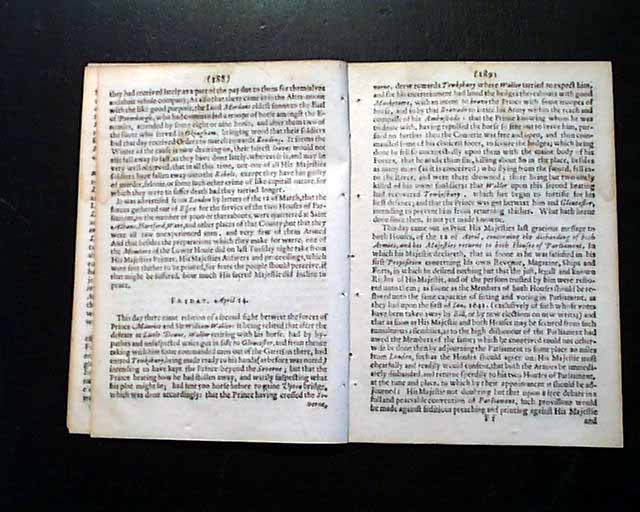 (188)
they had received lately as a part of the pay due to them for themselves
and their whole company; As also that there came in in the After-noone
with the like good purpose, the Lord Murdans eldest sonne to the Earl
of Peterborough, who had commanded a troope of horse amongst the E-
nemies, attended by some eight or nine horse, and after them two of
the same who served in Okingham, bringing word that their soldiers
had that day received Order to march towards Reading. It seems the
Winter of the cause is now drawing on, their leaves would not
else fall away so fast, as they have done lately, whereas it is, and may be
very well observed, that in all this time, not one of all His Majesties
soldiers have fallen away unto the Rebels, except they have bin guilty
of murder, felonie, or some such other crime of like capitall nature, for
which they were to suffer death had they tarried longer.
It was advertised from London by letters of the 12 of March, that the
forces gathered out of Essex for the service of the two Houses of Par-
liament, to the number of 3000 or thereabouts, were mustered at Saint
Albans, Hartford, Ware, and other places of that County; but that they
were all raw unexperienced men, and very few of them Armed
And that besides the preparations which they make for warre, one of
the Members of the Lower House did on last Tuesday night take from
His Majesties Printer, His Majesties Answers and proceedings, which
were sent thither to be printed, for feare the people should perceive, if
that might be suffered, how much His sacred Majestie did incline to
peace.
FRIDAY. April 14.
This day there came relation of a second fight between the forces of
Prince Maurice and Sir William Waller. It being related that after the
defeate at Little Deane, Waller retiring with his horse, had by by-
pathes and unsuspected waies got in safe to Glocester, and from thence
taking with him some commanded men out of the Garrison there, had
entred Tewksbury, being made ready to his hands (as before was noted)
intending to have kept the Prince beyond the Severne; but that the
Prince hearing how he had stollen away, and warily suspecting what
his plot might be, had sent 700 horse before to gaine Upton bridge,
which was done accordingly: that the Prince having crossed the Se-
verne,
(189)
verne, drew towards Tewksbury where Waller tarried to expect him,
and for his entertainment had lined the hedges thereabouts with good
Musketeres, with an intent to brave the Prince with some troopes of
horse, and so by that Bravado to intice his Army within the reach and
compasse of his Ambuscade: that the Prince knowing whom he was
to deale with, having repulsed the horse so sent out to brave him, pur-
sued no further then the Countrie was free and open, and then com-
manded some of his choicest foote, to scoure the hedges, which being
done he fell so unexpectedly upon them with the maine body of his
Forces, that he made them flie, killing about 80 in the place, besides
as many more (as it is conceived) who flying from the sword, fell in-
to the River, and were there drowned; there being but two onely
killed of his owne souldiers: that Waller upon this second beating
had recovered Tewksbury, which he began to fortifie for his
best defence; and that the Prince was got betwixt him and Glocester,
intending to prevent him from returning thither. What hath beene
done since then, is not yet made knowne.
This day came out in Print His Majesties last gracious message to
both Houses, of the 12 of April, concerning the disbanding of both
Armies, and his Majesties returne to both Houses of Parliament. In
which his Majestie declareth, that as soone as he was satisfied in his
first Proposition concerning his own Revenue, Magazine, Ships and
Forts, in which he desired nothing but that the just, legall and known
Rights of His Majestie, and of the persons trusted by him were resto-
red unto them; as soone as the Members of both Houses should be re-
stored unto the same capacitie of sitting and voting in Parliament, as
they had upon the first of Jan. 1641. (exclusively of such whose votes
have been taken away by Bill, or by new elections on new writs;) and
that as soon as His Majestie and both Houses may be secured from such
tumultuous assemblies, as to the high dishonour of the Parliament had
awed the Members of the same; which he conceived could not other-
wise be done then by adjourning the Parliament to some place 20 miles
from London, such as the Houses should agree on; His Majestie most
chearfully and readily would consent, that both the Armies be immedi-
ately disbanded, and returne speedily to his two Houses of Parliament,
at the time and place, to which by their appointment it should be ad-
journed: His Majestie not doubting but that upon a free debate in a
full and peaceable convention of Parliament, such provisions would
be made against seditious preaching and printing against His Majestie
Ff and